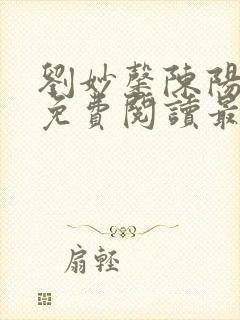 劉妙馨陳陽
免費閱讀最
扇輕